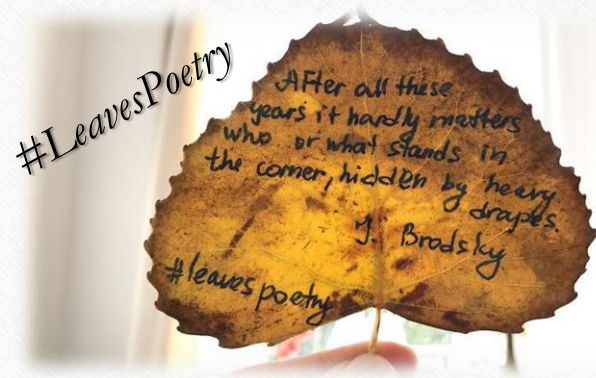 #LeavesPoetry
After all these
years it hardly matters
who or what stands in
the corner, hidden by heavy
drapes.
J. Brodsky
#leavespoetry